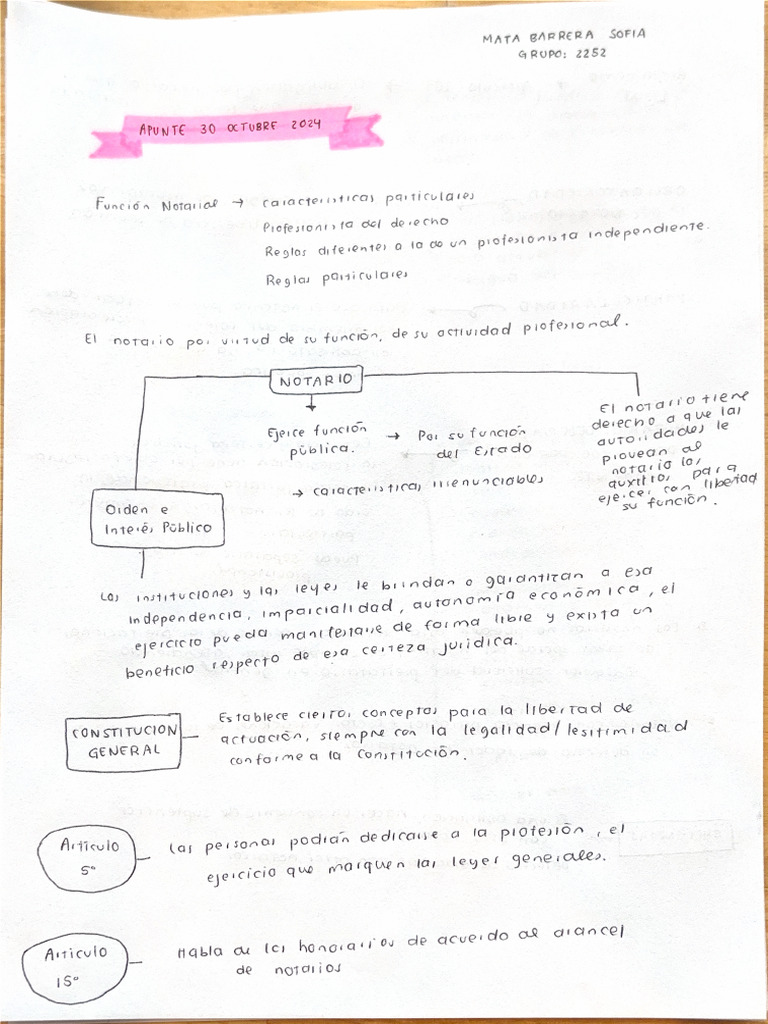 MATA BARRERA SOFIA
GRUPO: 2252
APUNTE 30 OCTUBRE 2024
Función Notarial → Características particulares
Profesionista del derecho
Reglas diferentes a la de un profesionista independiente.
Reglas particulares
El notario por virtud de su función, de su actividad profesional.
NOTARIO
Ejerce función
pública.
→ Por su función
del Estado
→ características irrenunciables
El notario tiene
derecho a que las
autoridades le
provean al
notario los
auxilios, para
ejercer con libertad
su función.
Orden e
Interés Público
Las instituciones y las leyes le brindan o garantizan a esa
independencia, imparcialidad, autonomía económica, el
ejercicio pueda manifestarse de forma libre y exista un
beneficio respecto de esa certeza jurídica.
CONSTITUCION
GENERAL
Establece ciertos conceptos para la libertad de
actuación, siempre con la legalidad/lesitimidad
conforme a la Constitución.
Artículo
5°
Las personas podrán dedicarse a la profesión, el
ejercicio que marquen las leyes generales.
Artículo
15°
Habla de los honorarios de acuerdo al arancel
de notarios